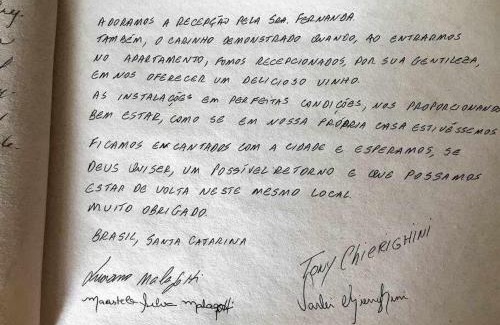 ADORAMOS A RECEPÇÃO PELA SRA. FERNANDA
TAMBÉM, O CARINHO DEMONSTRADO QUANDO, AO ENTRARMOS
NO APARTAMENTO, FOMOS RECEPCIONADOS, POR SUA GENTILEZA,
EM NOS OFERECER UM DELICIOSO VINHO.
AS INSTALAÇÕES EM PERFEITAS CONDIÇÕES, NOS PROPORCIONANDO
BEM ESTAR, COMO SE EM NOSSA PRÓPRIA CASA ESTIVÉSSEMOS
FICAMOS ENCANTADOS COM A CIDADE E ESPERAMOS, SE
DEUS QUISER, UM POSSÍVEL RETORNO E QUE POSSAMOS
ESTAR DE VOLTA NESTE MESMO LOCAL.
MUITO OBRIGADO.
BRASIL, SANTA CATARINA
TONY CHIERIGHINI
Malagotti
Silva Malagotti